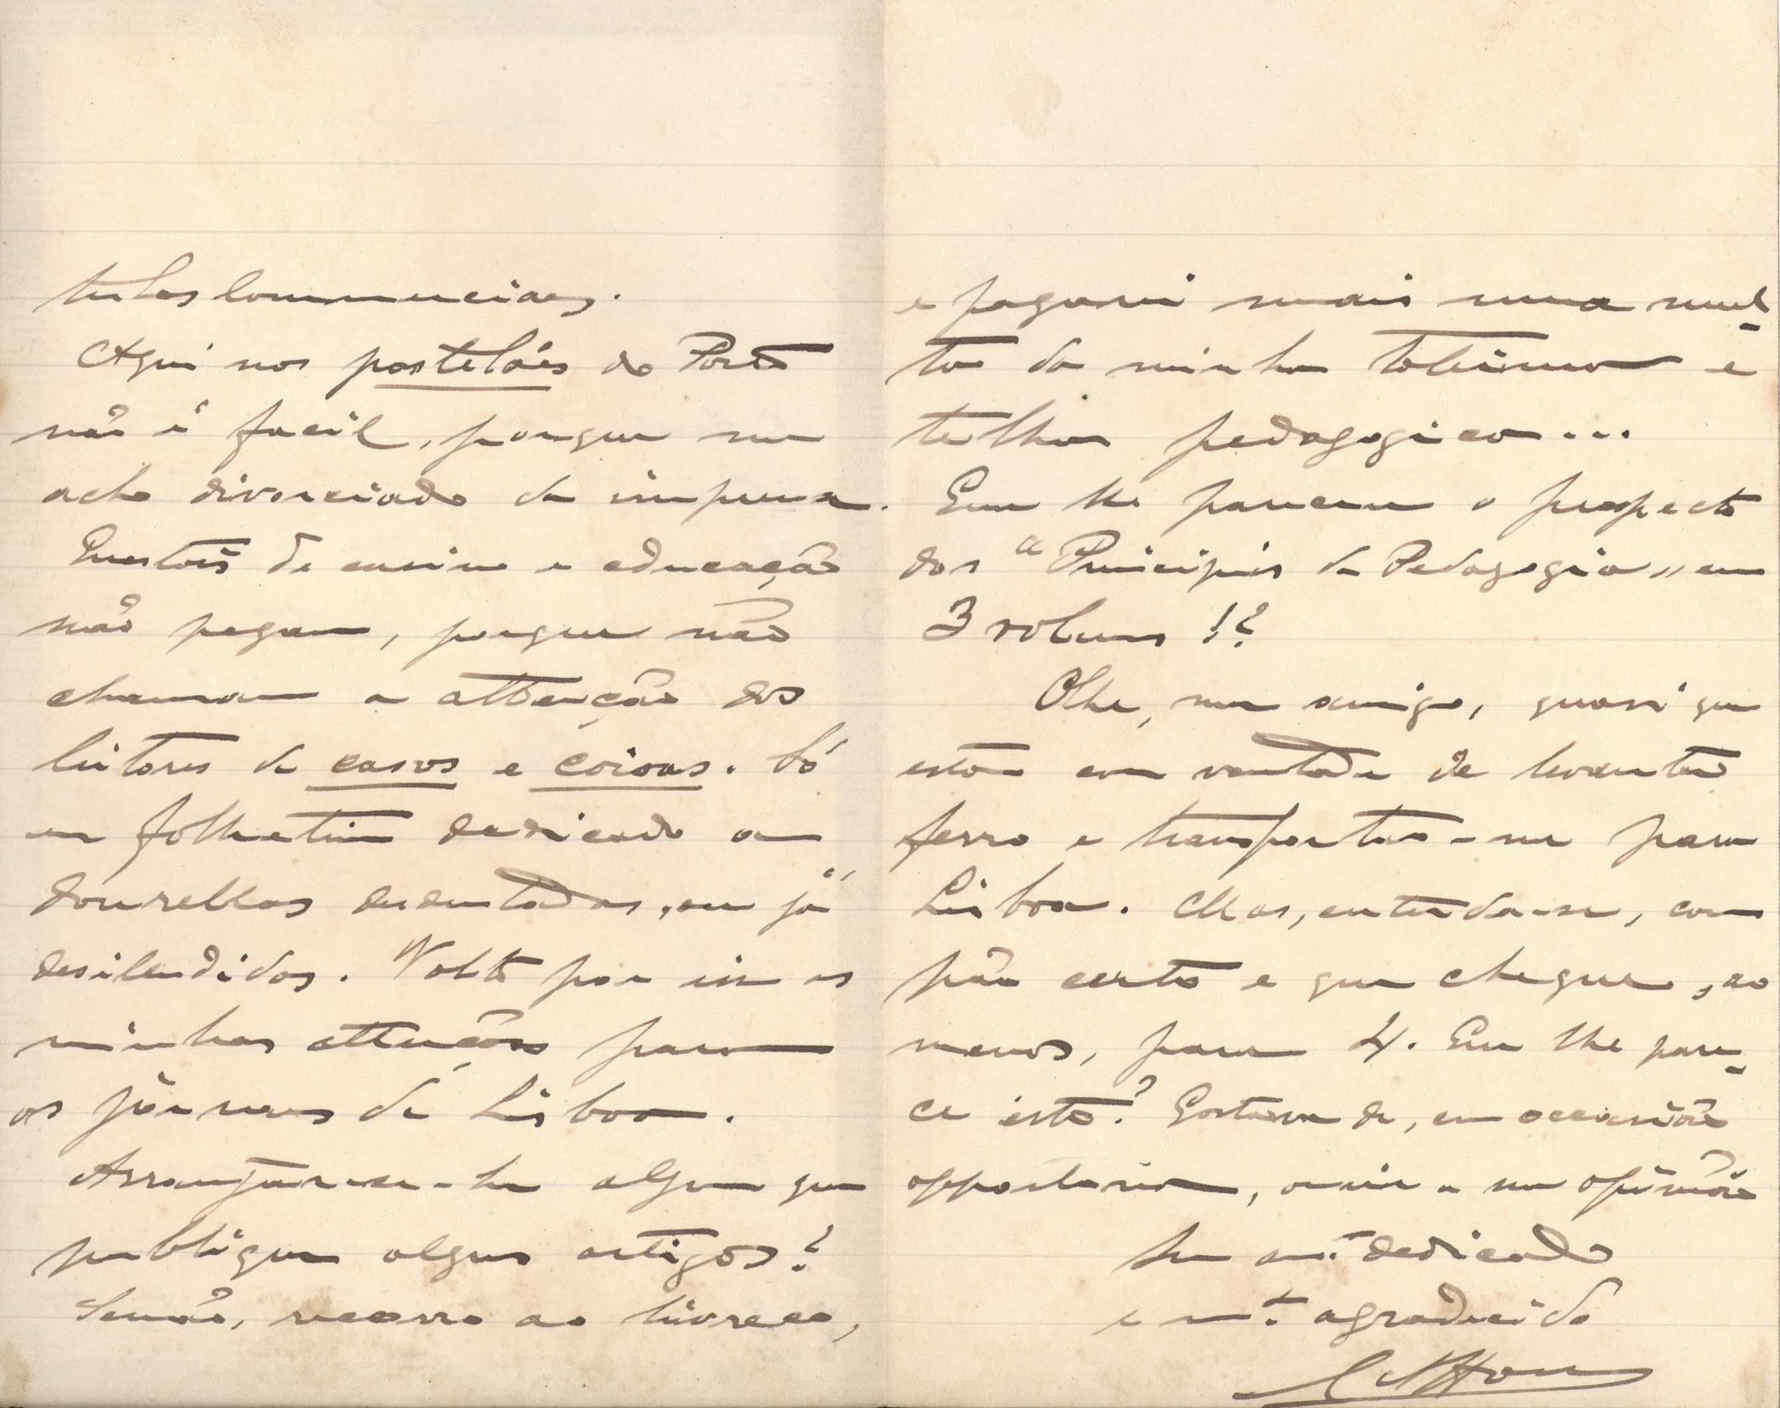 tulos Commerciaes.
Aqui nos postelões do Porto
não é facil, porque me
acho divorciado da imprensa.
Questões de ensino e educação
não pegam, porque não
chamam a attenção dos
leitores de casos e coisas. Só
em folhetim dedicado a
donzellas desdentadas, ou já
desilludidas. Volto por isso as
minhas attenções para
os jornaes de Lisboa.
Arranjar-se-ha algum que
publique alguns artigos?
Senão, recorro ao livreco,
e pagarei mais uma mul-
ta da minha teimosia e
telha pedagogica...
Que lhe pareceu o prospecto
dos "Principios de Pedagogia" em
3 volumes!?
Olhe, meu amigo, quasi que
estou com vontade de levantar
ferro e transportar-me para
Lisboa. Mas, entenda-se, com
pão certo e que chegue, ao
menos, para 4. Que lhe pare-
ce isto? Gostava de, em occasião
opportuna, ouvir a sua opinião
Seu am.º dedicado
e m.to agradecido